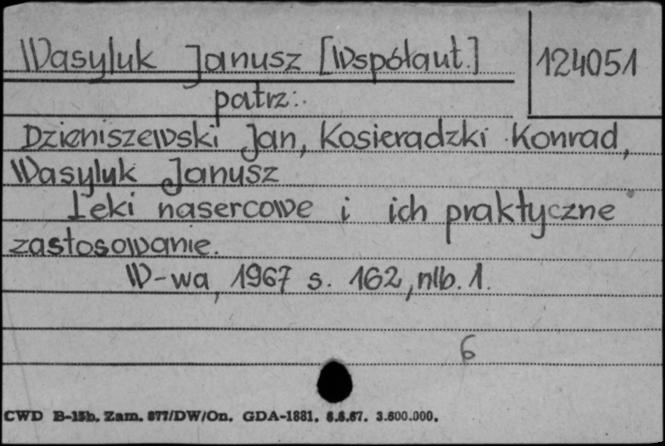 Wasyluk Janusz [Współaut.]
124051
patrz:
Dzieniszewski Jan, Kosieradzki Konrad,
Wasyluk Janusz
Leki nasercowe i ich praktyczne
zastosowanie.
W-wa, 1967 s. 162, nlb. 1.
6
CWD B-15b. Zam. 877/DW/On. GDA-1881. 8.8.67. 3.600.000.